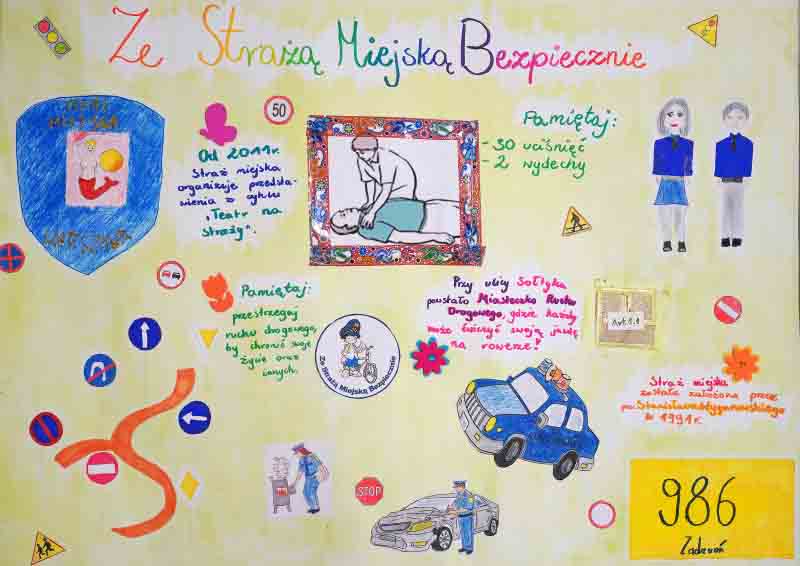 Ze Strażą Miejską Bezpiecznie
STRAŻ
MIEJSKA
WARSZAWA
50
Od 2011r.
Straż miejska
organizuje przedsta-
wienia z cyklu
„Teatr na
straży".
Pamiętaj:
- 30 uciśnięć
- 2 wydechy
Pamiętaj:
przestrzegaj
ruchu drogowego,
by chronić swoje
życie oraz
innych.
Ze Strażą Miejską Bezpiecznie
Przy ulicy Sołtyka
powstało Miasteczko Ruchu
Drogowego, gdzie każdy
może ćwiczyć swoją jazdę
na rowerze!
Art. 1.1
Straż miejska
została założona przez
pana Stanisława
w 1991r.
STOP
986
Zadzwoń